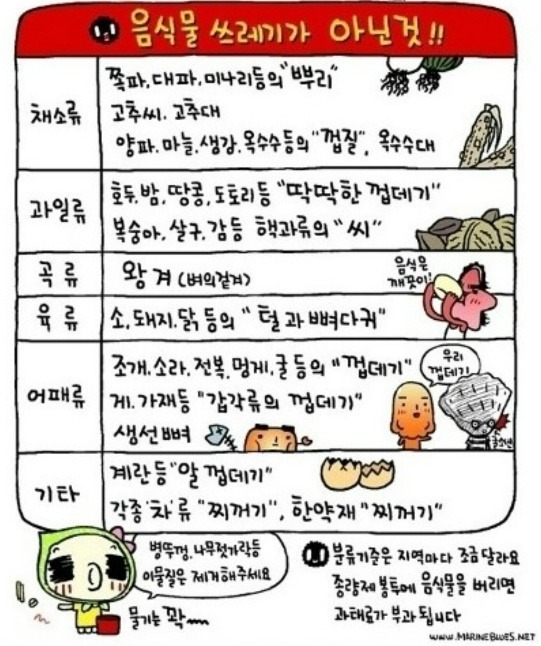 음식물 쓰레기가 아닌것!!
채소류
쪽파.대파.미나리등의 "뿌리"
고추씨. 고추대
양파.마늘.생강.옥수수등의 "껍질", 옥수수대
과일류
호두.밤.땅콩.도토리등 "딱딱한 껍데기"
복숭아.살구.감등 핵과류의 "씨"
곡류
왕겨 (벼의겉겨)
음식은
깨끗이!
육류
소.돼지.닭 등의 "털과 뼈다귀"
어패류
조개.소라.전복.멍게.굴 등의 "껍데기"
게.가재등 "갑각류의 껍데기"
생선뼈
우리
껍데기!
기타
계란등 "알 껍데기"
각종'차'류 "찌꺼기", 한약재 "찌꺼기"
병뚜껑.나무젓가락등
이물질은 제거해주세요
물기는 꽉
분류기준은 지역마다 조금달라요
종량제 봉투에 음식물을 버리면
과태료가 부과됩니다
WWW.MARINEBLUES.NET